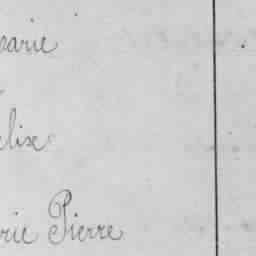 arie
elise
rie Pierre